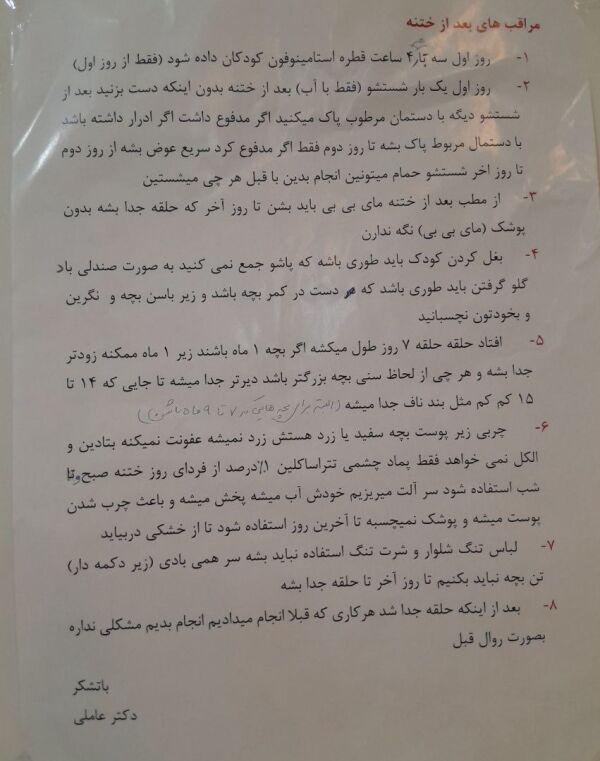 مراقب های بعد از ختنه
۱- روز اول سه تا ۴ ساعت قطره استامینوفون کودکان داده شود (فقط از روز اول)
۲- روز اول یک بار شستشو (فقط با آب) بعد از ختنه بدون اینکه دست بزنید بعد از
شستشو دیگه با دستمان مرطوب پاک میکنید اگر مدفوع داشت اگر ادرار داشته باشد
با دستمال مربوط پاک بشه تا روز دوم فقط اگر مدفوع کرد سریع عوض بشه از روز دوم
تا روز اخر شستشو حمام میتونین انجام بدین با قبل هر چی میشستین
۳- از مطب بعد از ختنه مای بی بی باید بشن تا روز آخر که حلقه جدا بشه بدون
پوشک (مای بی بی) نگه ندارن
۴- بغل کردن کودک باید طوری باشه که پاشو جمع نمی کنید به صورت صندلی باد
گلو گرفتن باید طوری باشد که دست در کمر بچه باشد و زیر باسن بچه و نگرین
و بخودتون نچسبانید
۵- افتاد حلقه حلقه ۷ روز طول میکشه اگر بچه ۱ ماه باشند زیر ۱ ماه ممکنه زودتر
جدا بشه و هر چی از لحاظ سنی بچه بزرگتر باشد دیرتر جدا میشه تا جایی که ۱۴ تا
۱۵ کم کم مثل بند ناف جدا میشه (البته برای بچه هایی که ۷ تا ۹ ماه باشن)
۶- چربی زیر پوست بچه سفید یا زرد هستش زرد نمیشه عفونت نمیکنه بتادین و
الکل نمی خواهد فقط پماد چشمی تتراساکلین ۱٪درصد از فردای روز ختنه صبح و تا
شب استفاده شود سر آلت میریزیم خودش آب میشه پخش میشه و باعث چرب شدن
پوست میشه و پوشک نمیچسبه تا آخرین روز استفاده شود تا از خشکی دربیاید
۷- لباس تنگ شلوار و شرت تنگ استفاده نباید بشه سر همی بادی (زیر دکمه دار)
تن بچه نباید بکنیم تا روز آخر تا حلقه جدا بشه
۸- بعد از اینکه حلقه جدا شد هرکاری که قبلا انجام میدادیم انجام بدیم مشکلی نداره
بصورت روال قبل
باتشکر
دکتر عاملی